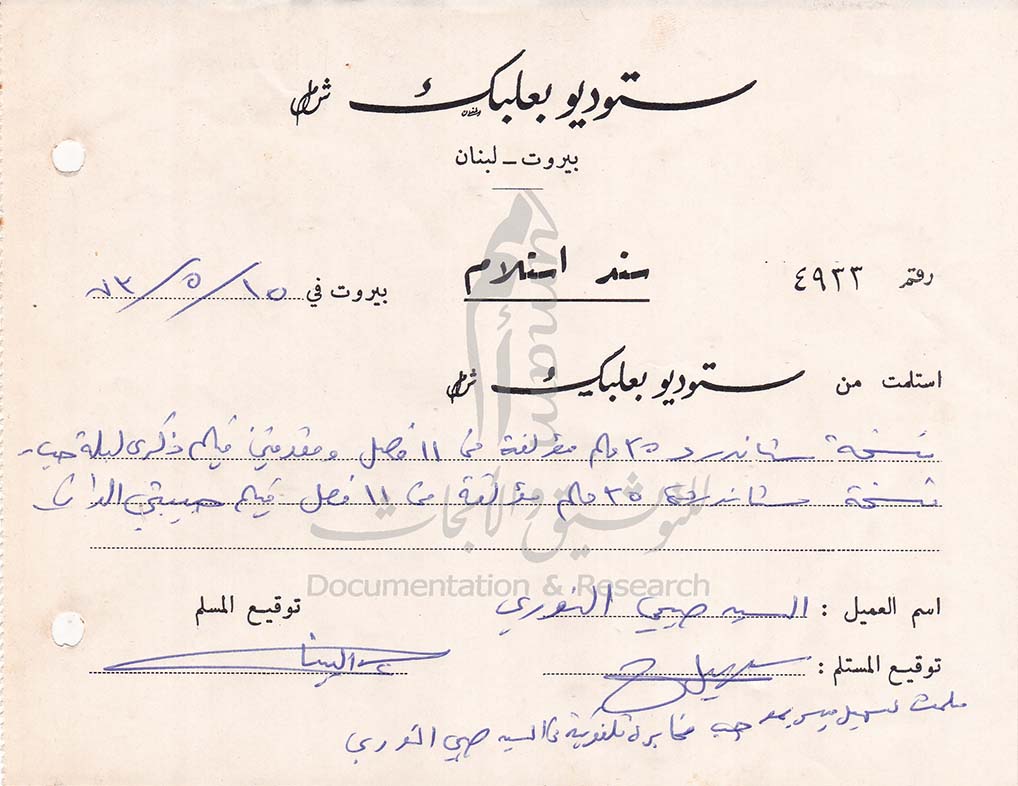 ستوديو بعلبك ش.م.ل
بيروت - لبنان
رقم ٤٩٣٣
سند استلام
بيروت في ١٥/٥/٧٣
استلمت من ستوديو بعلبك ش.م.ل
نسخة ستاندرد ٣٥ ملم مؤلفة من ١١ فصل ومقدمتين فيلم ذكرى ليلة حب -
نسخة ستاندرد ٣٥ ملم مؤلفة من ١١ فصل فيلم حبيبتي
اسم العميل : السيد صبحي النوري
توقيع المسلم
توقيع المستلم : سهيل
سلمت لسهيل بموجب مخابرة تلفونية من السيد صبحي النوري
umam
للتوثيق والأبحاث
Documentation & Research